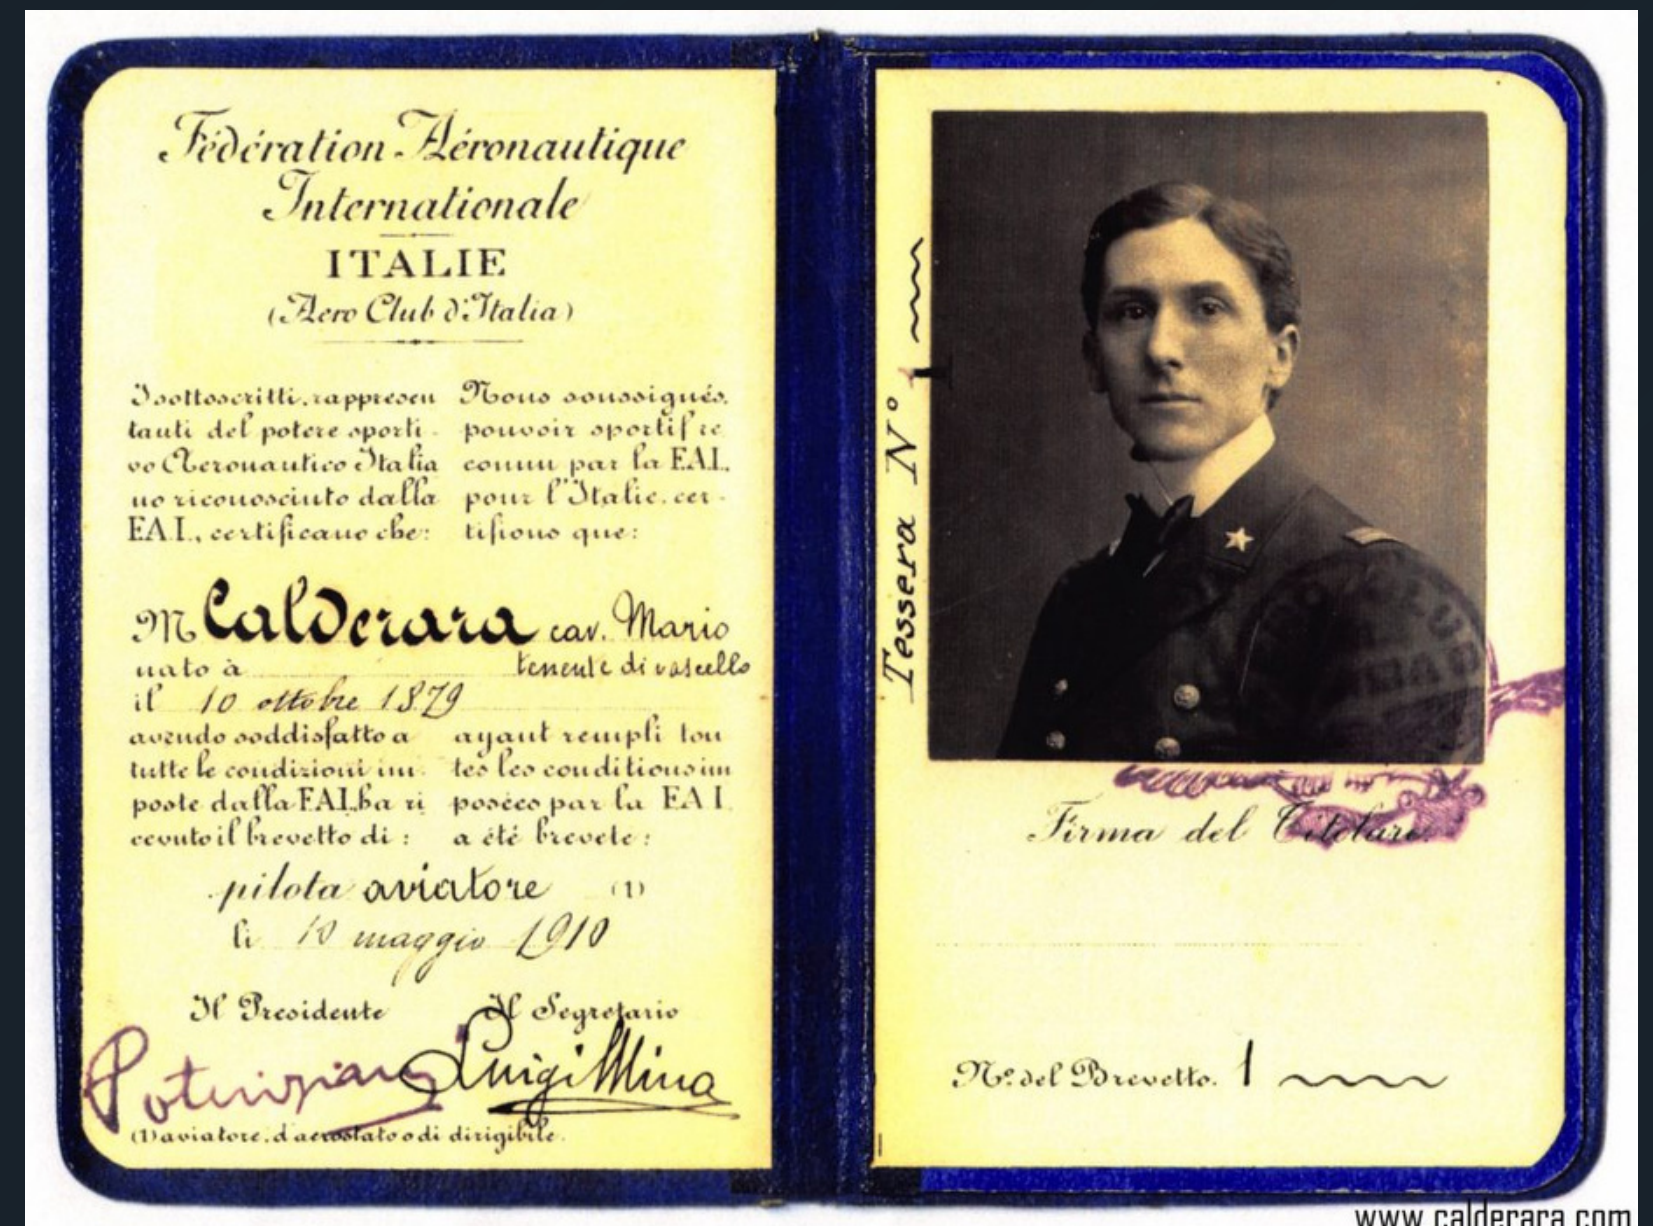 Fédération Aéronautique
Internationale
ITALIE
(Aero Club d'Italia)
I sottoscritti, rappresen
tanti del potere sporti-
vo Aeronautico Italia
no riconosciuto dalla
F.A.I., certificano che:
Nous soussignés,
pouvoir sportif re
connu par la F.A.I.
pour l'Italie, cer-
tifions que:
M Calderara cav. Mario
nato à tenente di vascello
il 10 ottobre 1879
avendo soddisfatto a
tutte le condizioni im-
poste dalla F.A.I. ha ri
cevuto il brevetto di:
ayant rempli tou
tes les conditions im
posées par la F.A.I.
a été breveté:
pilota aviatore (1)
li 10 maggio 1910
Il Presidente Il Segretario
Potenziani Luigi Mina
(1) aviatore, d'aerostato o di dirigibile.
Tessera N° 1
Firma del Titolare
N° del Brevetto. 1
www.calderara.com